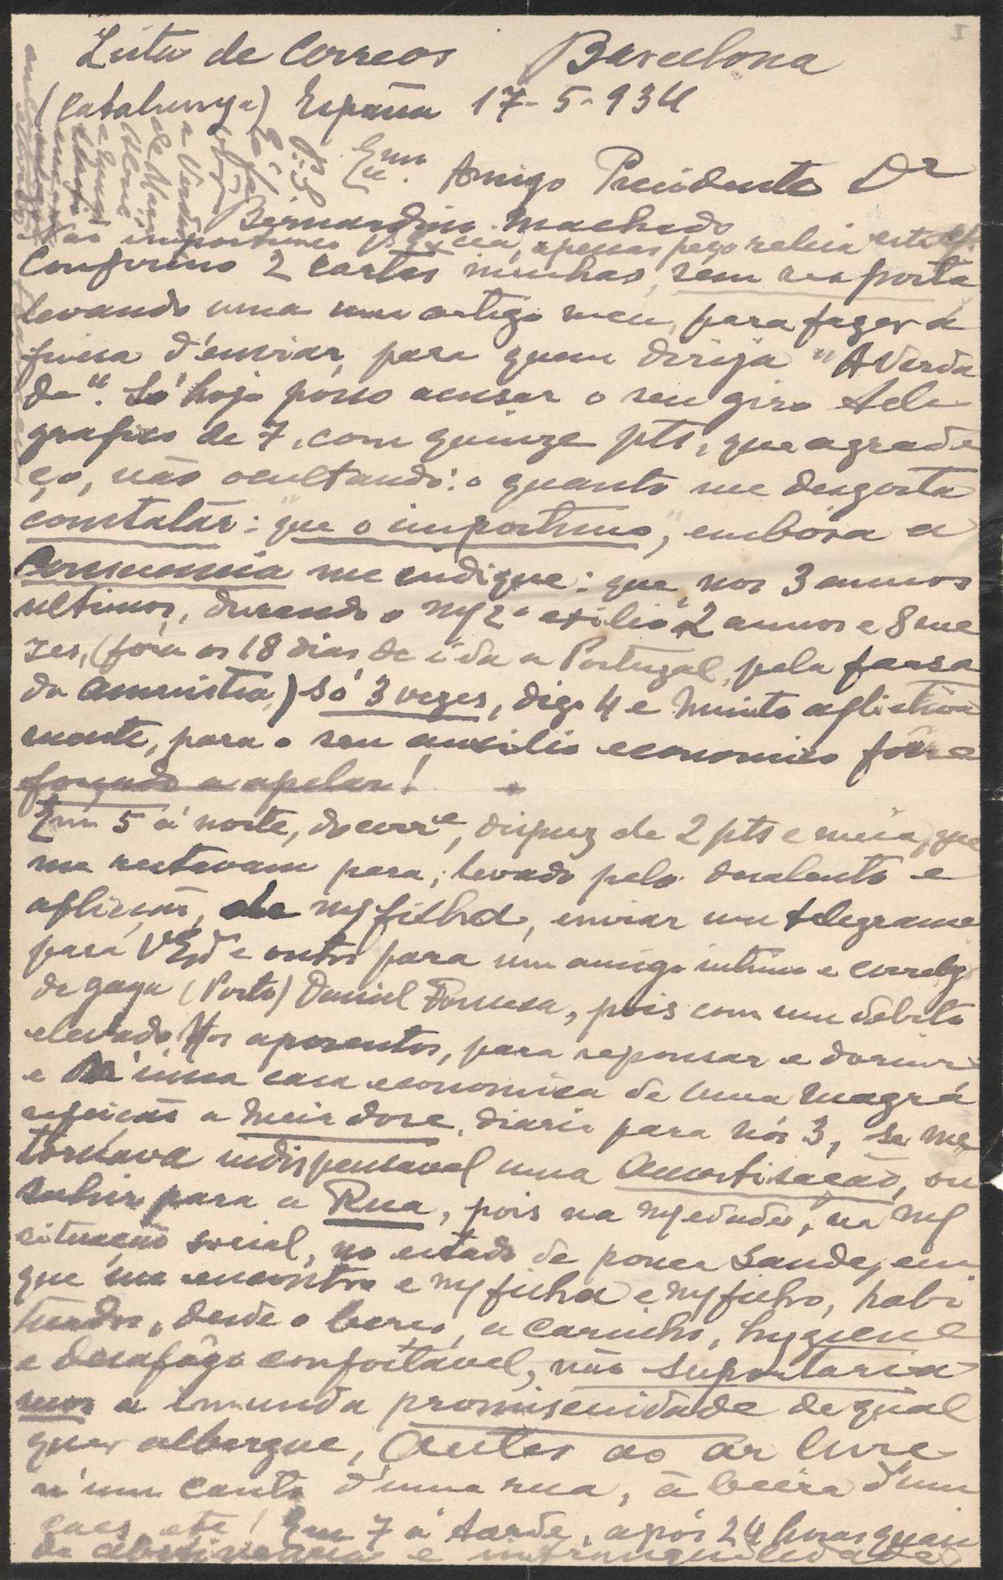 Lista de Correos Barcelona
(Catalunya) España 17-5-934
Exmo. Amigo Presidente Dr
Bernardino Machado
Não importuno V. Excia, apenas peço releia esta
Confirmo 2 cartas minhas, sem resposta
levando uma um artigo meu, para fazer a
fineza d'enviar, para quem dirija "A Verda
de". Só hoje posso acusar o seu giro tele
grafico de 7, com quinze pts, que agrade
ço, não ocultando: o quanto me desgosta
constatar: "que o importuno", embóra a
consciencia me indique: que, nos 3 annos
ultimos, durando o my 2º exilio 2 annos e 8 me
zes, (fóra os 18 dias de ida a Portugal, pela farsa
da amnistia) só 3 vezes, digo 4 e muito aflictiva
mente, para o seu auxilio economico fôra
forçado a apelar!
Em 5 á noite, do corre, dispuz de 2 pts e meia, que
me restavam para, levado pelo desalento e
aflição, de my filha, enviar um telegrama
para V. Exª e outro para um amigo intimo e correlig
de Gaya (Porto) Daniel Fonseca, pois com um débito
elevado Nos aposentos, para repousar e dormir
e n'uma casa economica de uma magrá
refeição a meia dose, diaria para nós 3, se me
tornava indispensavel uma amortisação, ou
sahir para a Rua, pois na my edade, na my
situação social, no estado de pouca saude, em
que me encontro e my filha e my filho, habi
tuados, desde o berço, a carinho, hygiene
e desafôgo confortavel, não suportaria
mos a immunda promiscuidade de qual
quer albergue, antes ao ar livre
n'um canto d'uma rua, á beira d'um
caes, etc! Em 7 á tarde, após 24 horas quasi
de abstinencia e intranquilidade